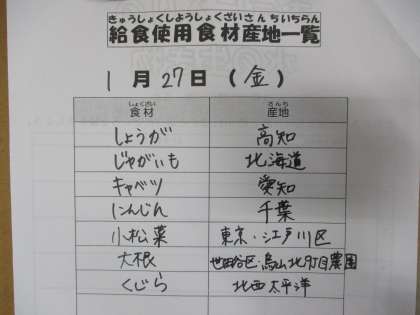 きゅうしょくしようしょくざいさんちいちらん
給食使用食材産地一覧
1月27日(金)
しょくざい さんち
食材 産地
しょうが 高知
じゃがいも 北海道
キャベツ 愛知
にんじん 千葉
小松菜 東京・江戸川区
大根 世田谷区・烏山北9丁目農園
くじら 北西太平洋